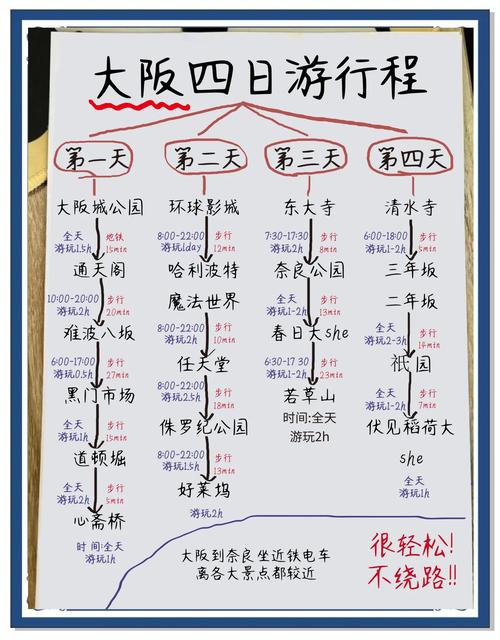 大阪四日游行程
第一天
大阪城公园
全天
游玩1.5h
地铁
15min
通天阁
10:00-20:00
游玩2h
步行
20min
难波八坂
6:00-17:00
游玩0.5h
步行
27min
黑门市场
全天
游玩1h
步行
15min
道顿堀
全天
游玩2h
步行
5min
心斋桥
时间:全天
游玩1h
第二天
环球影城
8:00-22:00
游玩1day
步行
12min
哈利波特
魔法世界
8:00-22:00
游玩2h
步行
10min
任天堂
8:00-22:00
游玩2.5h
步行
18min
侏罗纪公园
8:00-22:00
游玩1.5h
步行
13min
好莱坞
游玩2h
第三天
东大寺
7:30-17:30
游玩2h
步行
8min
奈良公园
全天
游玩1-2h
步行
13min
春日大she
6:30-17:30
游玩1-2h
步行
23min
若草山
时间:全天
游玩2h
第四天
清水寺
6:00-18:00
游玩1-2h
步行
5min
三年坂
二年坂
全天
游玩2-3h
步行
14min
祇园
全天
游玩1-2h
步行
7min
伏见稻荷大
she
全天
游玩1h
大阪到奈良坐近铁电车
离各大景点都较近
很轻松!
不绕路!!